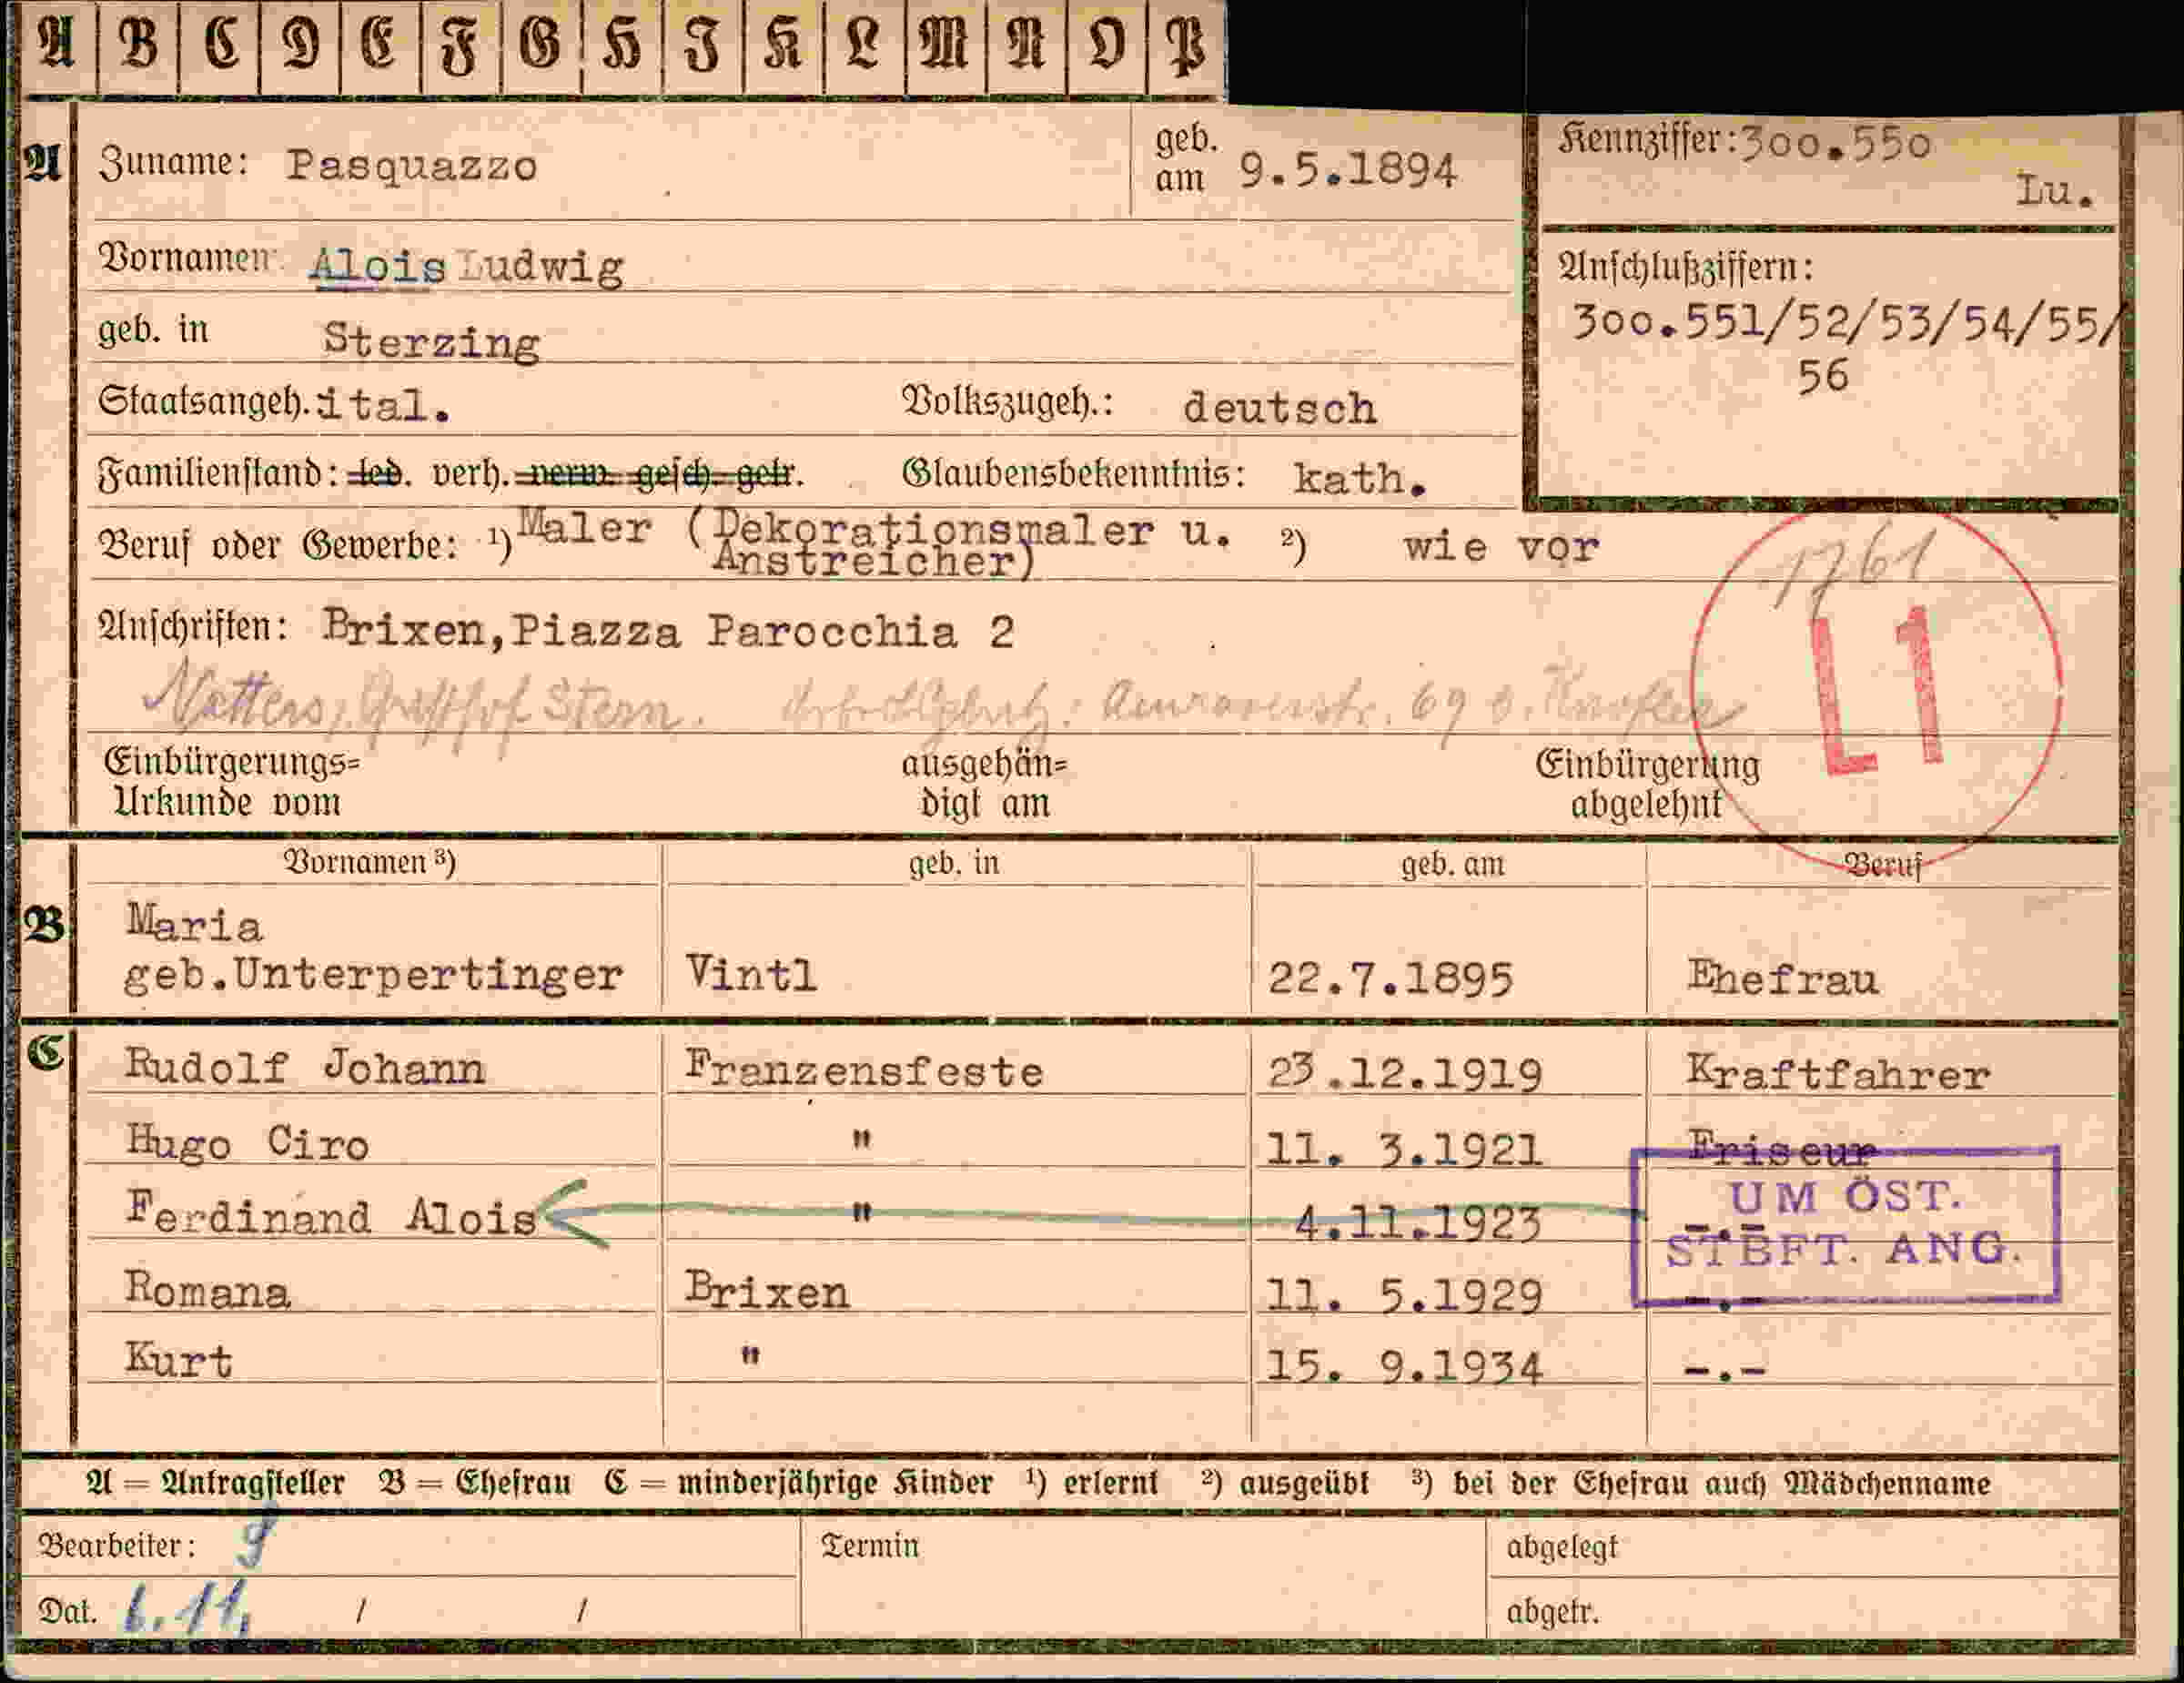 A B C D E F G H I K L M N O P
A Zuname: Pasquazzo geb. am 9.5.1894
Kennziffer: 300.550
Lu.
Vornamen Alois Ludwig
Anschlußziffern:
300.551/52/53/54/55/
56
geb. in Sterzing
Staatsangeh. ital. Volkszugeh.: deutsch
Familienstand: led. verh. verw. gesch. getr. Glaubensbekenntnis: kath.
Beruf oder Gewerbe: 1) Maler (Dekorationsmaler u. Anstreicher) 2) wie vor
1761
L1
Anschriften: Brixen, Piazza Parocchia 2
Natters, Gasthof Stern.
Einbürgerungs= Urkunde vom ausgehän= digt am Einbürgerung abgelehnt
Vornamen 3) geb. in geb. am Beruf
B Maria
geb. Unterpertinger Vintl 22.7.1895 Ehefrau
C Rudolf Johann Franzensfeste 23.12.1919 Kraftfahrer
Hugo Ciro " 11. 3.1921 Friseur
Ferdinand Alois " 4.11.1923 -.-
UM ÖST.
STBFT. ANG.
Romana Brixen 11. 5.1929 -.-
Kurt " 15. 9.1934 -.-
A = Antragsteller B = Ehefrau C = minderjährige Kinder 1) erlernt 2) ausgeübt 3) bei der Ehefrau auch Mädchenname
Bearbeiter: Termin abgelegt
Dat. 6.11. / / abgetr.